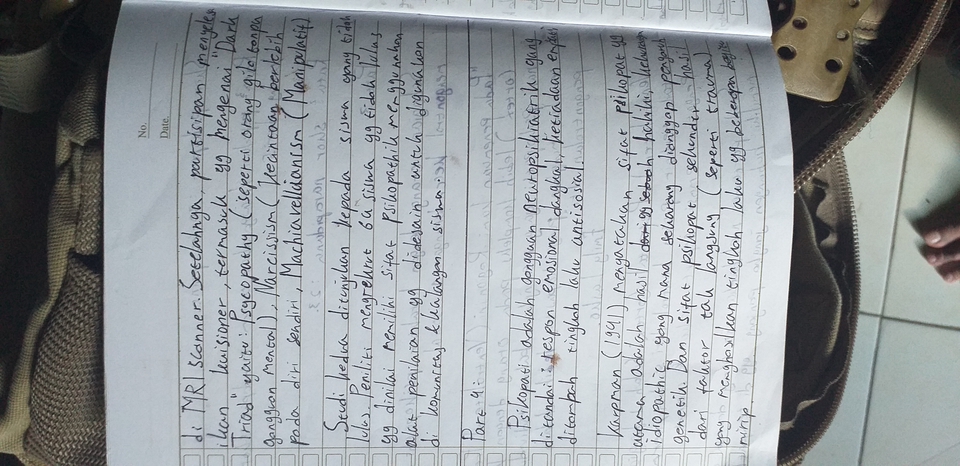 No.
Date.
di MRI scanner. Setelahnya, partisipan menyelesa
ikan kuisioner, termasuk yg mengenai "Dark
Triad" yaitu: Psycopathy (seperti orang gila tanpa
gangguan mental), Narcissism (kecintaan berlebih
pada diri sendiri, Machiavellianism (Manipulatif)
Studi kedua ditunjukan kepada siswa yang tidak
lulus. Peniliti mengrekrut 62 siswa yg tidak lulus
yg dinilai memiliki sifat psikopathik menggunakan
alat penilaian yg didesain untuk digunakan
di komunitas kalangan siswa.
Part 4:
Psikopati adalah gangguan neuropsikiatrik yang
ditandai respon emosional dangkal, ketiadaan empati
ditambah tingkah laku antisosial.
Karpman (1941) mengatakan sifat psikopat yg
utama adalah hasil hakiki, kekurangan
idiopathic yang mana sekarang dianggap pengaruh
genetik. Dan sifat psikopat sekunder, hasil
dari faktor tak langsung (seperti trauma)
yang menghasilkan tingkah laku yg beberapa
mirip